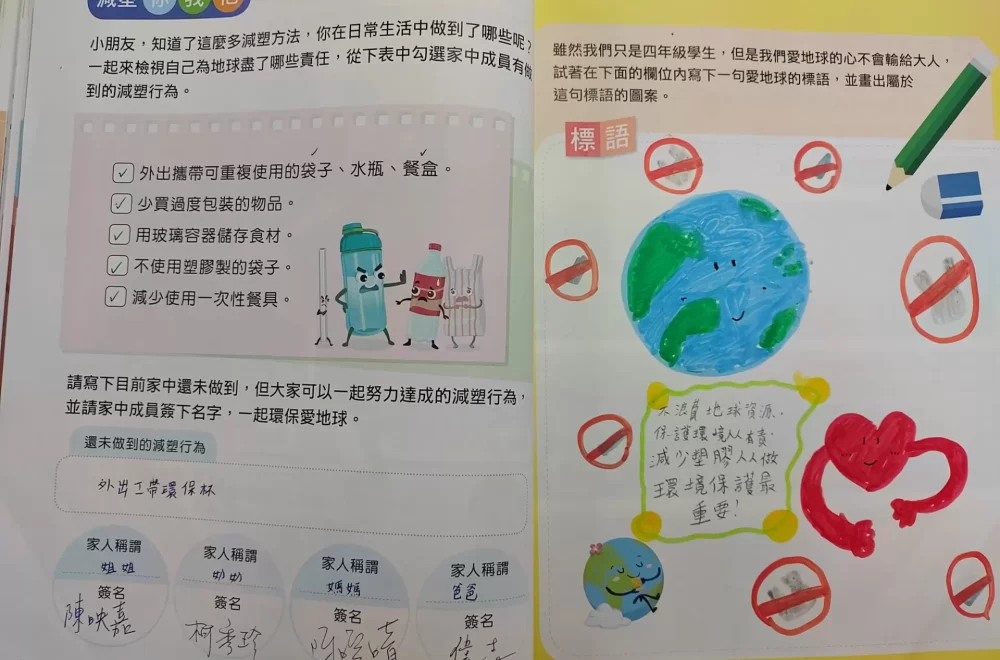 減塑你我他
小朋友，知道了這麼多減塑方法，你在日常生活中做到了哪些呢？
一起來檢視自己為地球盡了哪些責任，從下表中勾選家中成員有做
到的減塑行為。
✓ 外出攜帶可重複使用的袋子、水瓶、餐盒。
✓ 少買過度包裝的物品。
✓ 用玻璃容器儲存食材。
✓ 不使用塑膠製的袋子。
✓ 減少使用一次性餐具。
請寫下目前家中還未做到，但大家可以一起努力達成的減塑行為，
並請家中成員簽下名字，一起環保愛地球。
還未做到的減塑行為
外出工帶環保杯
家人稱謂
姐姐
簽名
陳映嘉
家人稱謂
奶奶
簽名
柯秀珍
家人稱謂
媽媽
簽名
家人稱謂
爸爸
簽名
雖然我們只是四年級學生，但是我們愛地球的心不會輸給大人，
試著在下面的欄位內寫下一句愛地球的標語，並畫出屬於
這句標語的圖案。
標語
不浪費地球資源.
保護環境人人有責.
減少塑膠人人做
環境保護最
重要!